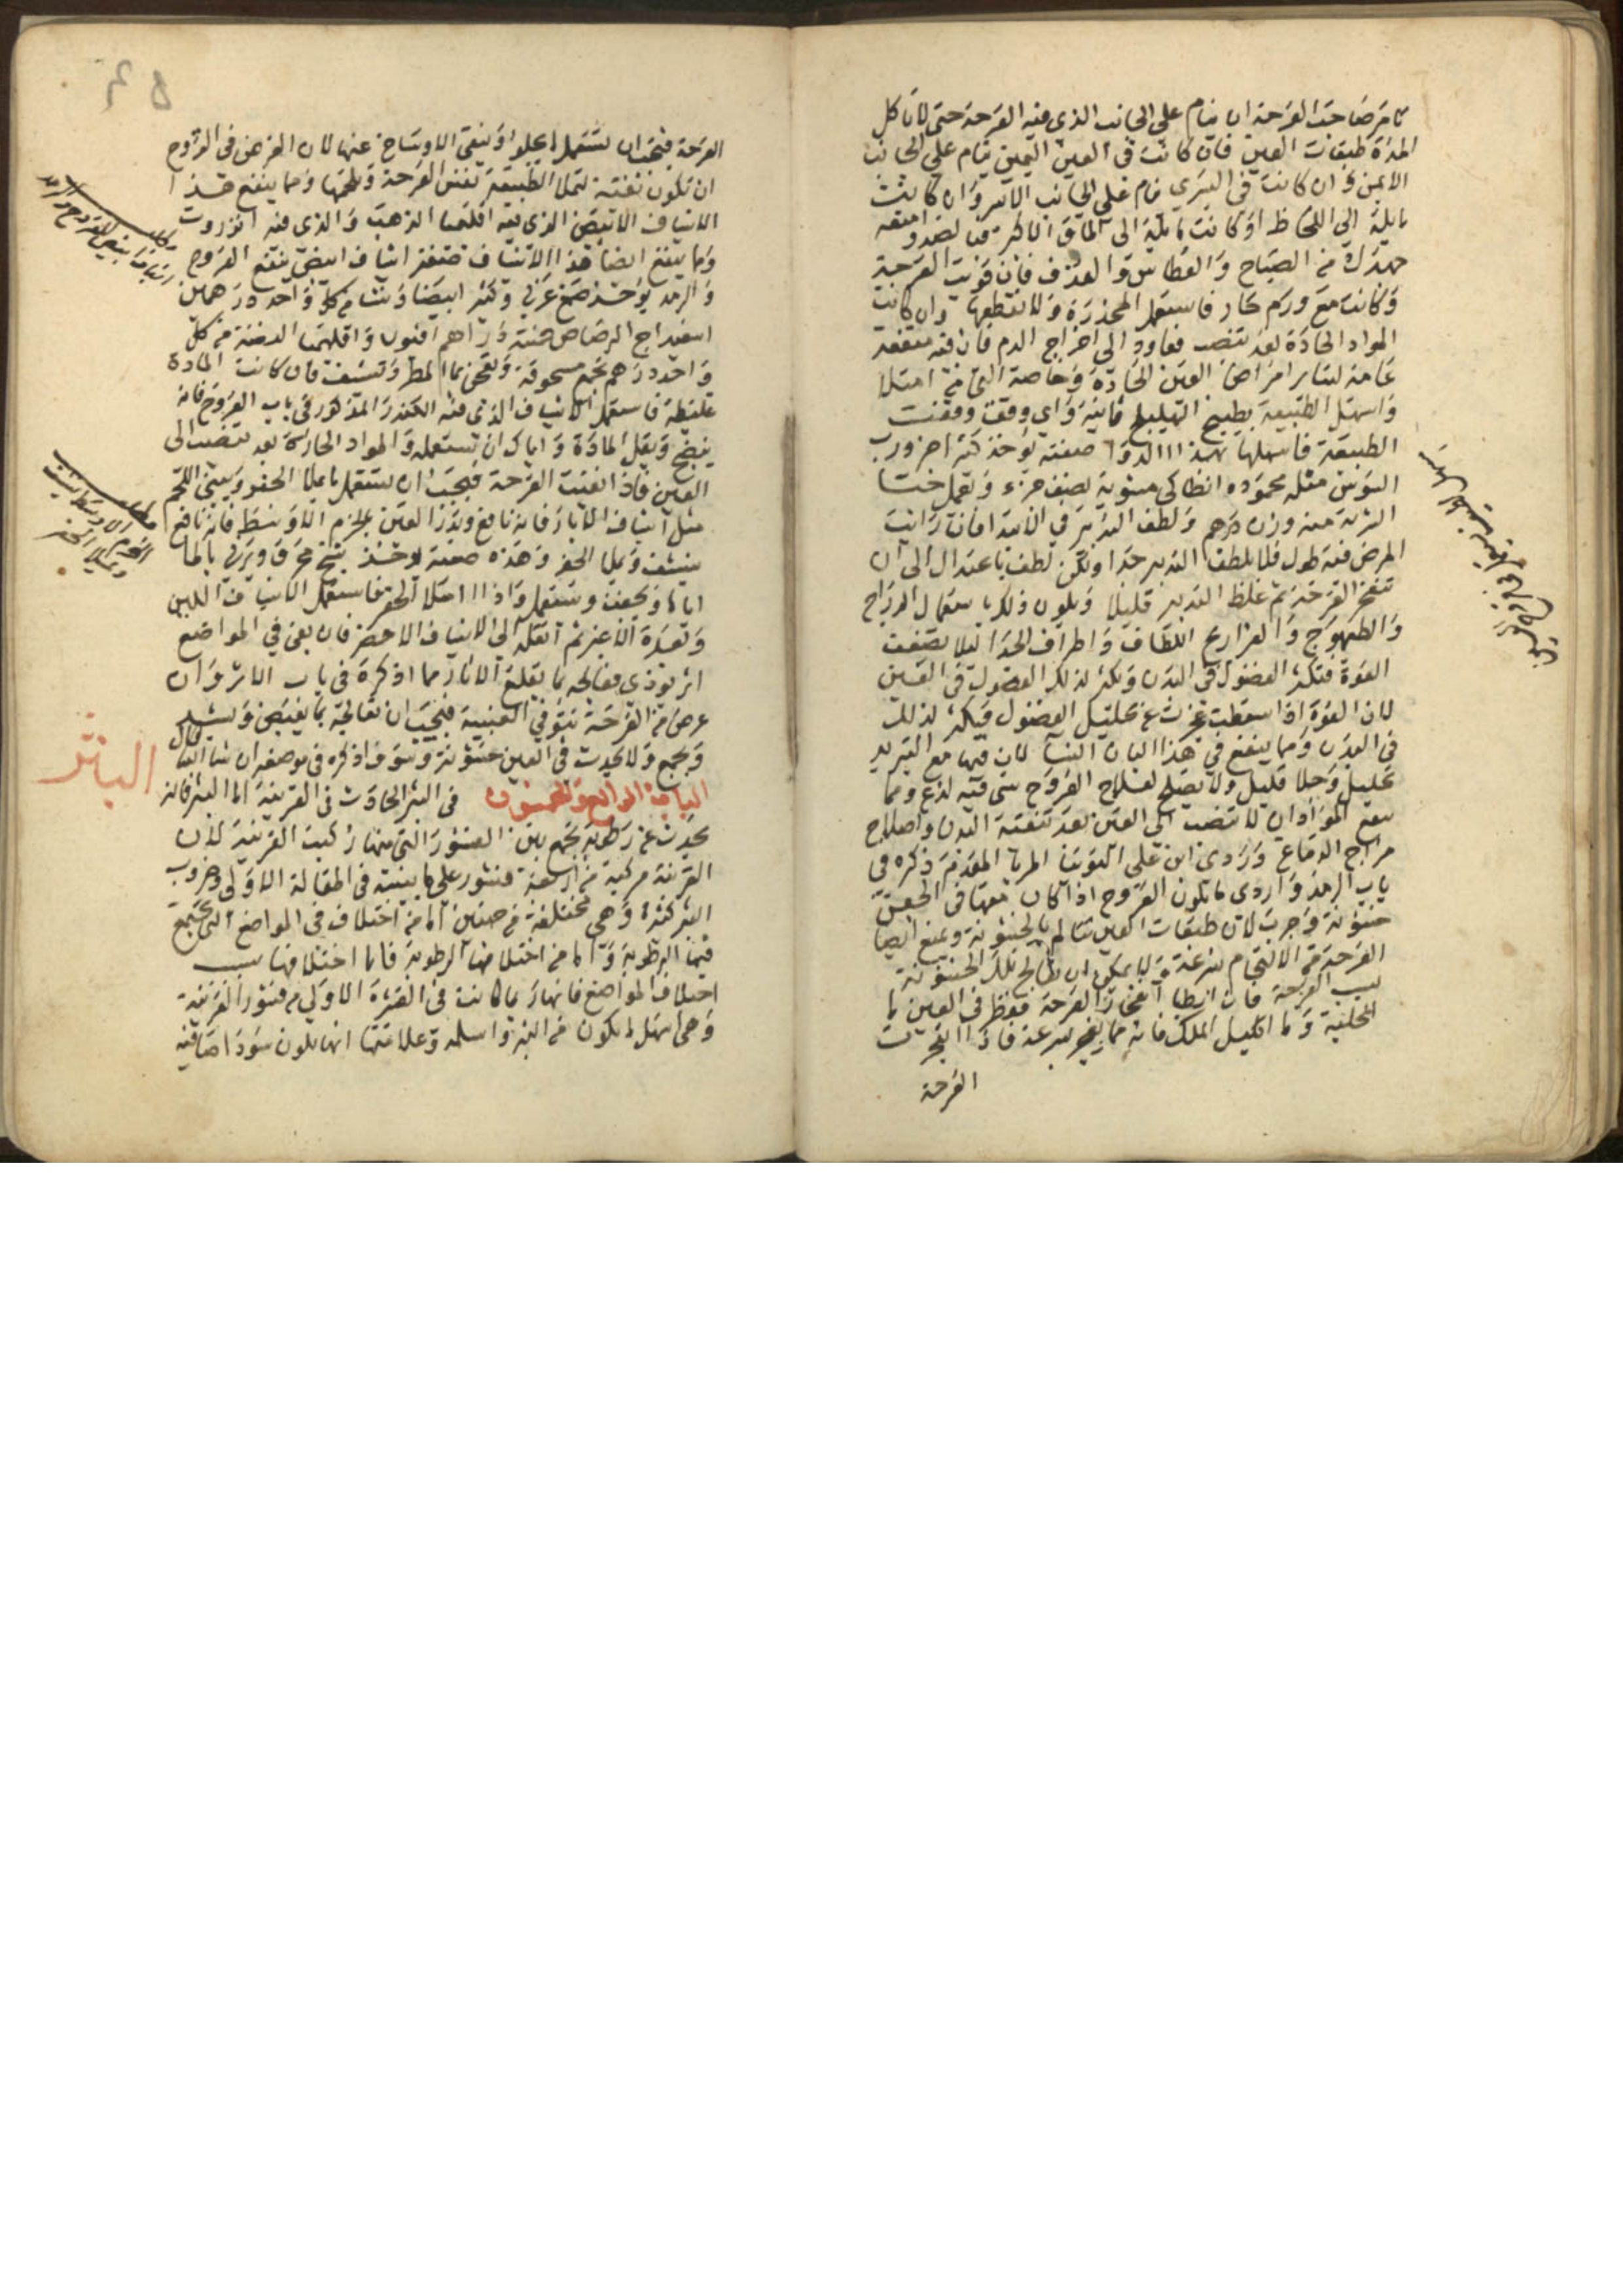 تامر صاحب القرحة ان ينام على الجانب الذى فيه القرحة حتى لا تاكل
المدة طبقات العين فان كانت فى العين اليمين ينام على الجانب
الايمن وان كانت فى اليسري نام على الجانب الايسر وان كانت
مايلة الى اللحاظ او كانت مايلة الى الماق الاكبر
جهدك من الصياح والعطاس والعذف فان قويت القرحة
وكانت مع ورم حار فاستعمل المخدرة ولا تقطعها وان كانت
المواد الحادة بعد تنصب فعاود الى اخراج الدم فان فيه منفعة
عامة لساير امراض العين الحادة وخاصة التى من امتلا
واسهل الطبيعة بطبيخ الهليلج ثانية واي وقت وقفت
الطبيعة فاسهلها بهذا الدوا صفته يوخذ كثيرا جزو رب
السوس مثله محموده انطاكى مشوية نصف جزء وتعمل حبا
الشربة منه وزن درهم ولطف التدبير في الابتدا فان رايت
المرض فيه طول فلا تلطف التدبير جدا ولكن لطف باعتدال الى ان
تنفجر القرحة ثم غلظ التدبير قليلا ويكون ذلك باستعمال الدراج
والطيهوج والفراريج اللطاف واطراف الجدا ليلا تضعف
القوة فتكثر الفضول فى البدن ويكثر لذلك الفضول فى العين
لان القوة اذا سقطت عجزت عن تحليل الفضول فيكثر لذلك
فى البدن ومما ينفع في هذا البان النسا لان فيها مع التبريد
تحليل وجلا قليل ولا يصلح لعلاج القروح شى فيه لذع ومما
يمنع المواد ان لا تنصب الى العين بعد تنقية البدن واصلاح
مزاج الدماغ ورادى ابن على التوتيا المربا المقدم ذكره فى
باب الرمد واردى ما تكون القروح اذا كان معها فى الجفن
خشونة وجرب لان طبقات العين تتالم بالخشونة ويمنع ايضا
القرحة من الالتحام بسرعة ولا يمكن ان يعالج تلك الخشونة
بسبب القرحة فان ابطا انفجار القرحة فقطر فى العين ما
الحلبة وما اكليل الملك فانه مما يفجر بسرعة فاذا انفجرت
القرحة
القرحة فيجب ان تستعمل ما يجلوا وينقى الاوساخ عنها لان الغرض فى القروح
ان تكون نقية لتملا الطبيعة نفس القرحة وتلحمها ومما ينفع هذا
الاشياف الابيض الذى فيه اقليميا الذهب والذى فيه انزروت
ومما ينفع ايضا هذا الاشياف صفة اشياف ابيض ينفع القروح
والرمد يوخذ صمغ عربي وكثيرا ابيضا ونشا من كل واحد درهمين
اسفيداج الرصاص خمسة دراهم افيون واقليميا الفضة من كل
واحد درهم تجمع مسحوقة وتعجن بما المطر وتشيف فان كانت المادة
غليظة فاستعمل الاشياف الذى فيه الكندر المذكور فى باب القروح فانه
ينضج ويقل المادة واياك ان تستعمله والمواد الحارة بعد تنصب الى
العين فاذا انقيت القرحة فيجب ان يستعمل ما يملا الحفر وينبت اللحم
مثل اشياف الابار فانه نافع وبرز العين بحزم الاوسط فانه نافع
ينشف ويملا الحفر وهذه صفته يوخذ شيح محرق ويربى بالما
اياما ويجفف ويستعمل واذا امتلا الحفر فاستعمل الاشياف اللين
وبعده الاغبر ثم انقله الى الاشياف الاخضر فان بقى في المواضع
اثر يوذى فعالجه بما يقلع الاثار مما اذكره فى باب الاثر وان
عرض من القرحة نتو في العنبية فيجب ان تعالجه بما يقبض ويشد
ويجمع ولا يحدث فى العين خشونة وسوف اذكره فى موضعه ان شا الله تعالى
الباب الرابع والخمسون فى البثر الحادث فى القرنية اما البثر فانه
يحدث عن رطوبة تجتمع بين القشور التى منها ركبت القرنية لان
القرنية مركبة من اربعة قشور على ما بينته فى المقالة الاولى وضروب
البثر كثيرة وهى مختلفة من جهتين اما من اختلاف فى المواضع التى تجتمع
فيها الرطوبة واما من اختلاف الرطوبة فاما اختلافها بسبب
اختلاف المواضع فانها ربما كانت فى القشرة الاولى من قشور القرنية
وهى اسهل ما يكون من البثر واسلمه وعلامتها انها تكون سودا صافية
البثر